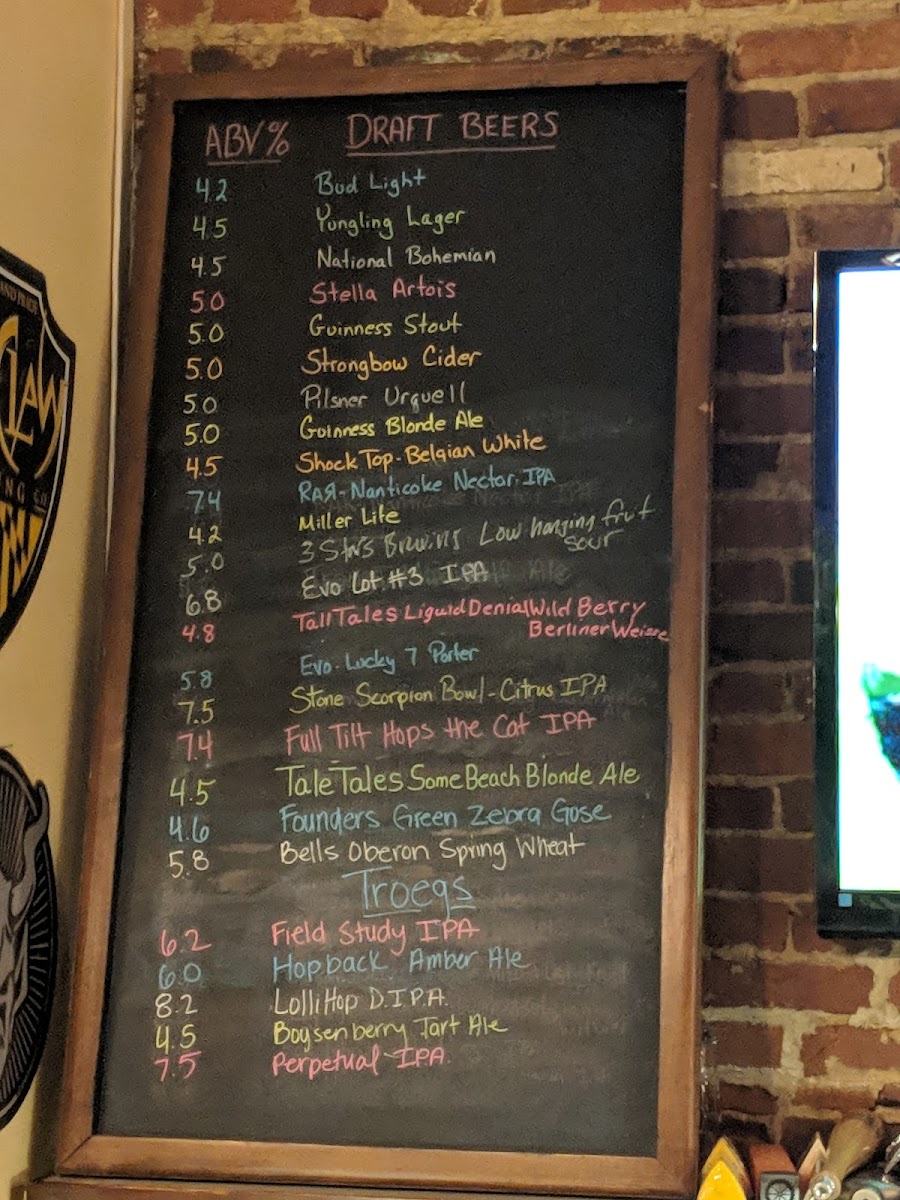 ABV% DRAFT BEERS
4.2 Bud Light
4.5 Yungling Lager
4.5 National Bohemian
5.0 Stella Artois
5.0 Guinness Stout
5.0 Strongbow Cider
5.0 Pilsner Urquell
5.0 Guinness Blonde Ale
4.5 Shock Top-Belgian White
7.4 RAЯ-Nanticoke Nectar IPA
4.2 Miller Lite
5.0 3 Stars Brewing Low hanging fruit
sour
6.8 Evo Lot #3 IPA
4.8 Tall Tales Liquid Denial Wild Berry
Berliner Weisse
5.8 Evo-Lucky 7 Porter
7.5 Stone Scorpion Bowl-Citrus IPA
7.4 Full Tilt Hops the Cat IPA
4.5 Tale Tales Some Beach Blonde Ale
4.6 Founders Green Zebra Gose
5.8 Bells Oberon Spring Wheat
Troegs
6.2 Field Study IPA
6.0 Hopback Amber Ale
8.2 LolliHop D.I.P.A.
4.5 Boysenberry Tart Ale
7.5 Perpetual IPA.
CLAW